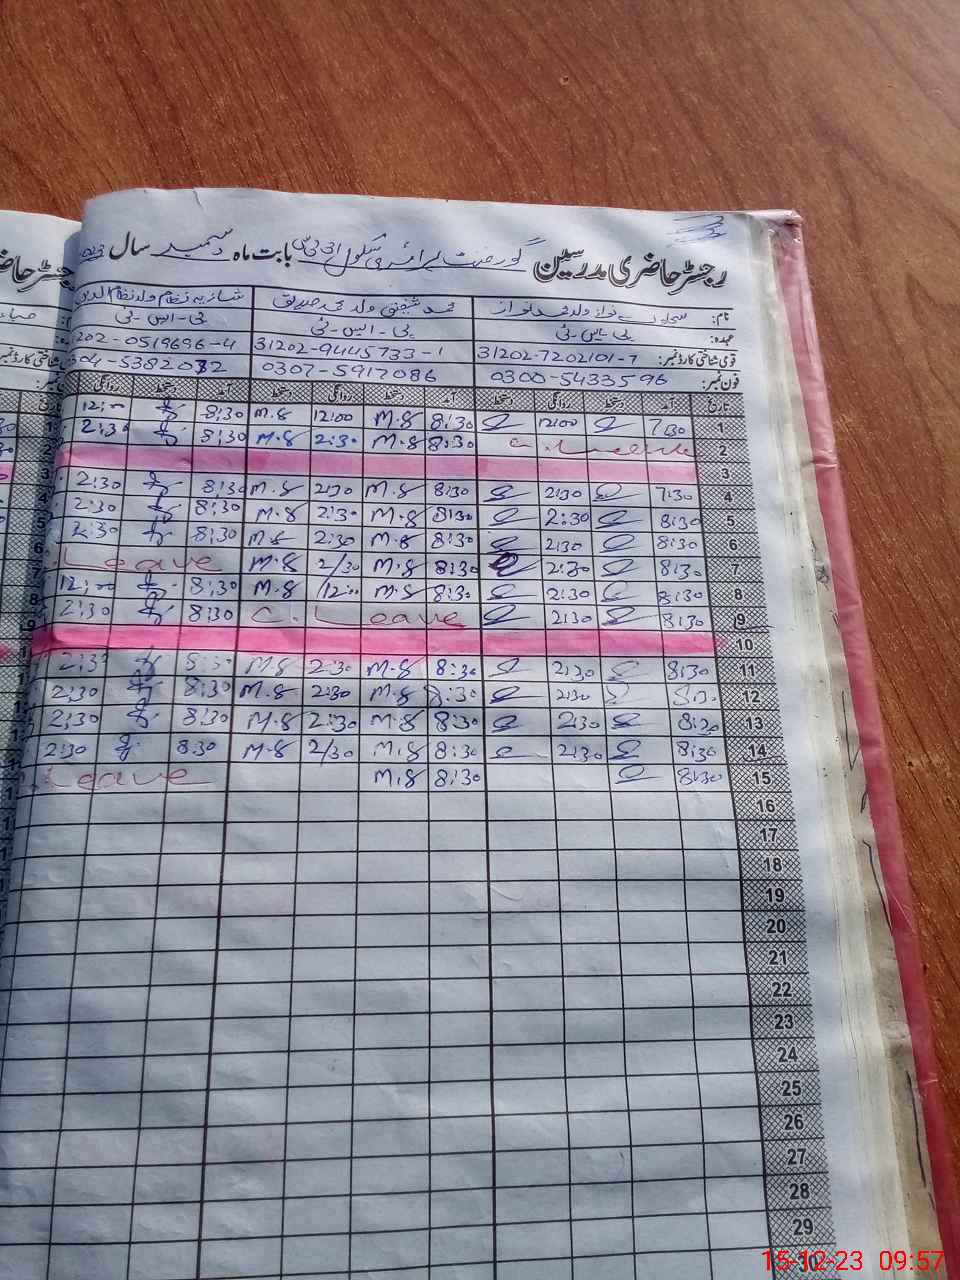 رجسٹر حاضری مدرسین گورنمنٹ پرائمری سکول بابت ماہ دسمبر سال
نام: ولد محمد نواز محمد شفیق ولد محمد صدیق شازیہ نظام ولد نظام الدین
عہدہ: پی ایس ٹی پی-ایس-ٹی پی-ایس-ٹی
قومی شناختی کارڈ نمبر: 31202-7202101-7 31202-9445733-1 1202-0519696-4
فون نمبر: 0300-5433596 0307-5917086
تاریخ آمد دستخط روانگی دستخط آمد دستخط روانگی دستخط آمد دستخط روانگی
1 7:30 12:00 8:30 M.S 12:00 M.S 8:30 12:00
2 C. Leave 8:30 M.S 2:30 M.S 8:30 2:30
3
4 7:30 2:30 8:30 M.S 2:30 M.S 8:30 2:30
5 8:30 2:30 8:30 M.S 2:30 M.S 8:30 2:30
6 8:30 2:30 8:30 M.S 2:30 M.S 8:30 2:30
7 8:30 2:30 8:30 M.S 2/30 M.S Leave
8 8:30 2:30 8:30 M.S 12:00 M.S 8:30 12:00
9 8:30 2:30 C. Leave 8:30 2:30
10
11 8:30 2:30 8:30 M.S 2:30 M.S 8:30 2:30
12 8:30 2:30 8:30 M.S 2:30 M.S 8:30 2:30
13 8:30 2:30 8:30 M.S 2:30 M.S 8:30 2:30
14 8:30 2:30 8:30 M.S 2/30 M.S 8:30 2:30
15 8:30 8:30 M.S Leave
16
17
18
19
20
21
22
23
24
25
26
27
28
29
30
15-12-23 09:57